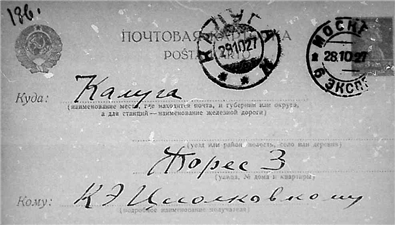 186.
ПОЧТОВАЯ КАРТОЧКА
POŜTA KARTO
КАЛУГА
29.10.27
МОСКВА
28.10.27
6 ЭКСП.
Куда: Калуга
(наименование места, где находится почта, и губернии или округа,
а для станций—наименование железной дороги)
(уезд или район, волость, село или деревня)
Жорес 3
(улица, № дома и квартиры)
Кому: К Э Циолковскому
(подробное наименование получателя)